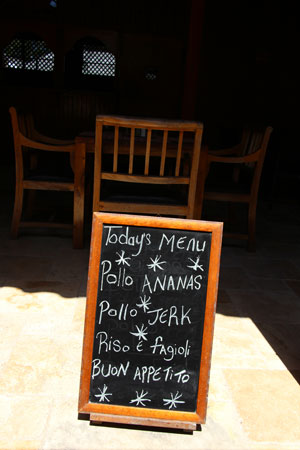 Today's MENU
Pollo ANANAS
Pollo JERK
Riso e fagioli
BUON APPETITO